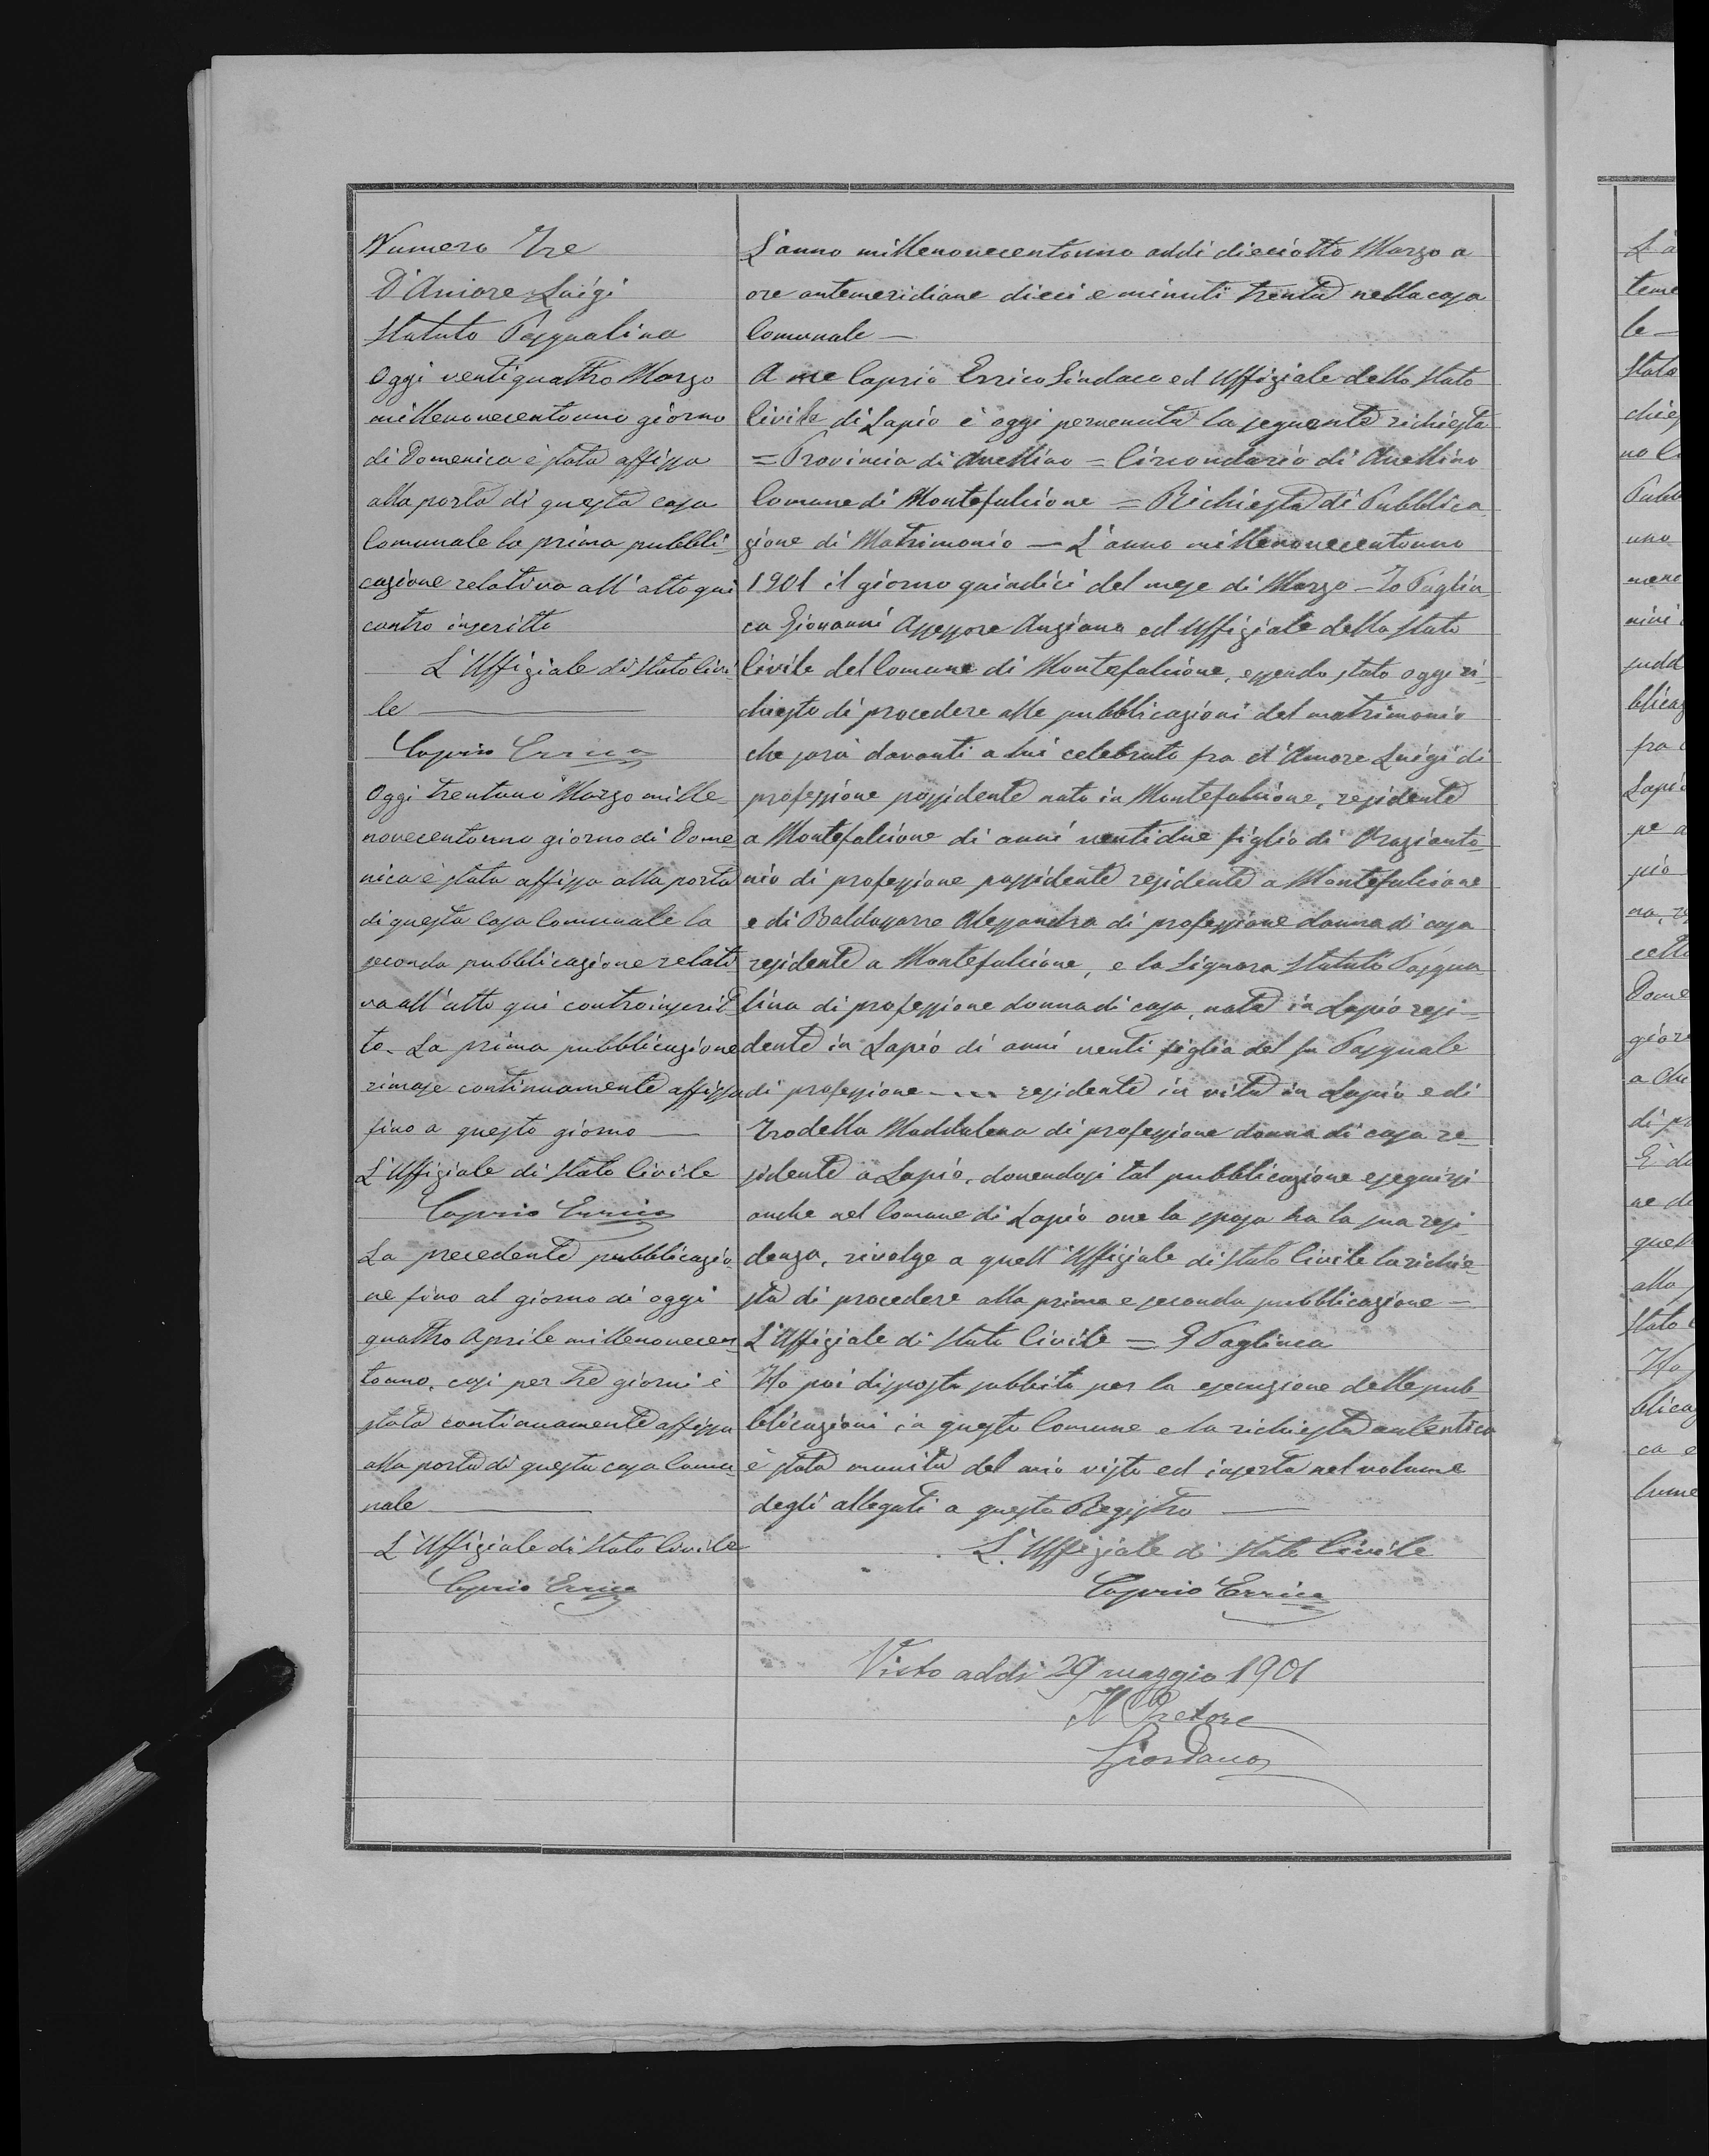 Numero Tre
D'Amore Luigi
Statuto Pasqualina
Oggi ventiquattro Marzo
millenovecentouno giorno
di Domenica è stata affissa
alla porta di questa casa
Comunale la prima pubbli-
cazione relativa all'atto qui
contro inseritto
L'Uffiziale di Stato Civi-
le
Caprio Errico
Oggi trentuno Marzo mille-
novecentouno giorno di Dome-
nica è stata affissa alla porta
di questa Casa Comunale la
seconda pubblicazione relati
va all'atto qui controinserit-
to. La prima pubblicazione
rimase continuamente affissa
fino a questo giorno
L'Uffiziale di Stato Civile
Caprio Errico
La precedente pubblicazio-
ne fino al giorno di oggi
quattro Aprile millenovecen-
touno, cosi per tre giorni è
stata continuamente affissa
alla porta di questa casa Comu-
nale
L'Uffiziale di Stato Civile
Caprio Errico
L'anno millenovecentouno addi dieciotto Marzo a
ore antemeridiane dieci e minuti trenta nella casa
Comunale —
A me Caprio Errico Sindaco ed Uffiziale dello Stato
Civile di Lapio è oggi pervenuta la seguente richiesta
= Provincia di Avellino = Circondario di Avellino
Comune di Montefalcione = Richiesta di Pubblica
zione di Matrimonio — L'anno millenovecentouno
1901 il giorno quindici del mese di Marzo – Io Paglia
ca Giovanni Assessore Anziano ed Uffiziale dello Stato
Civile del Comune di Montefalcione, essendo stato oggi ri-
chiesto di procedere alle pubblicazioni del matrimonio
che sarà davanti a lui celebrato fra d'Amore Luigi di
professione possidente nato in Montefalcione, residente
a Montefalcione di anni ventidue figlio di Orazianto-
nio di professione possidente residente a Montefalcione
e di Baldassarre Alessandra di professione donna di casa
residente a Montefalcione, e la Signora Statuto Pasqua-
lina di professione donna di casa, nata in Lapio resi-
dente in Lapio di anni venti figlia del fu Pasquale
di professione --- residente in vita in Lapio e di
Trodella Maddalena di professione donna di casa re-
sidente a Lapio, dovendosi tal pubblicazione eseguirsi
anche nel Comune di Lapio ove la sposa ha la sua resi-
denza, rivolge a quell'Uffiziale di Stato Civile la richie-
sta di procedere alla prima e seconda pubblicazione —
L'Uffiziale di Stato Civile = G Pagliuca
Ho poi disposto subbito per la esecuzione delle pub-
blicazioni in questo Comune e la richiesta autentica
è stata munita del mio visto ed inserta nel volume
degli allegati a questo Registro
L'Uffiziale di Stato Civile
Caprio Errico
Visto addì 29 maggio 1901
Il Pretore
Giordano